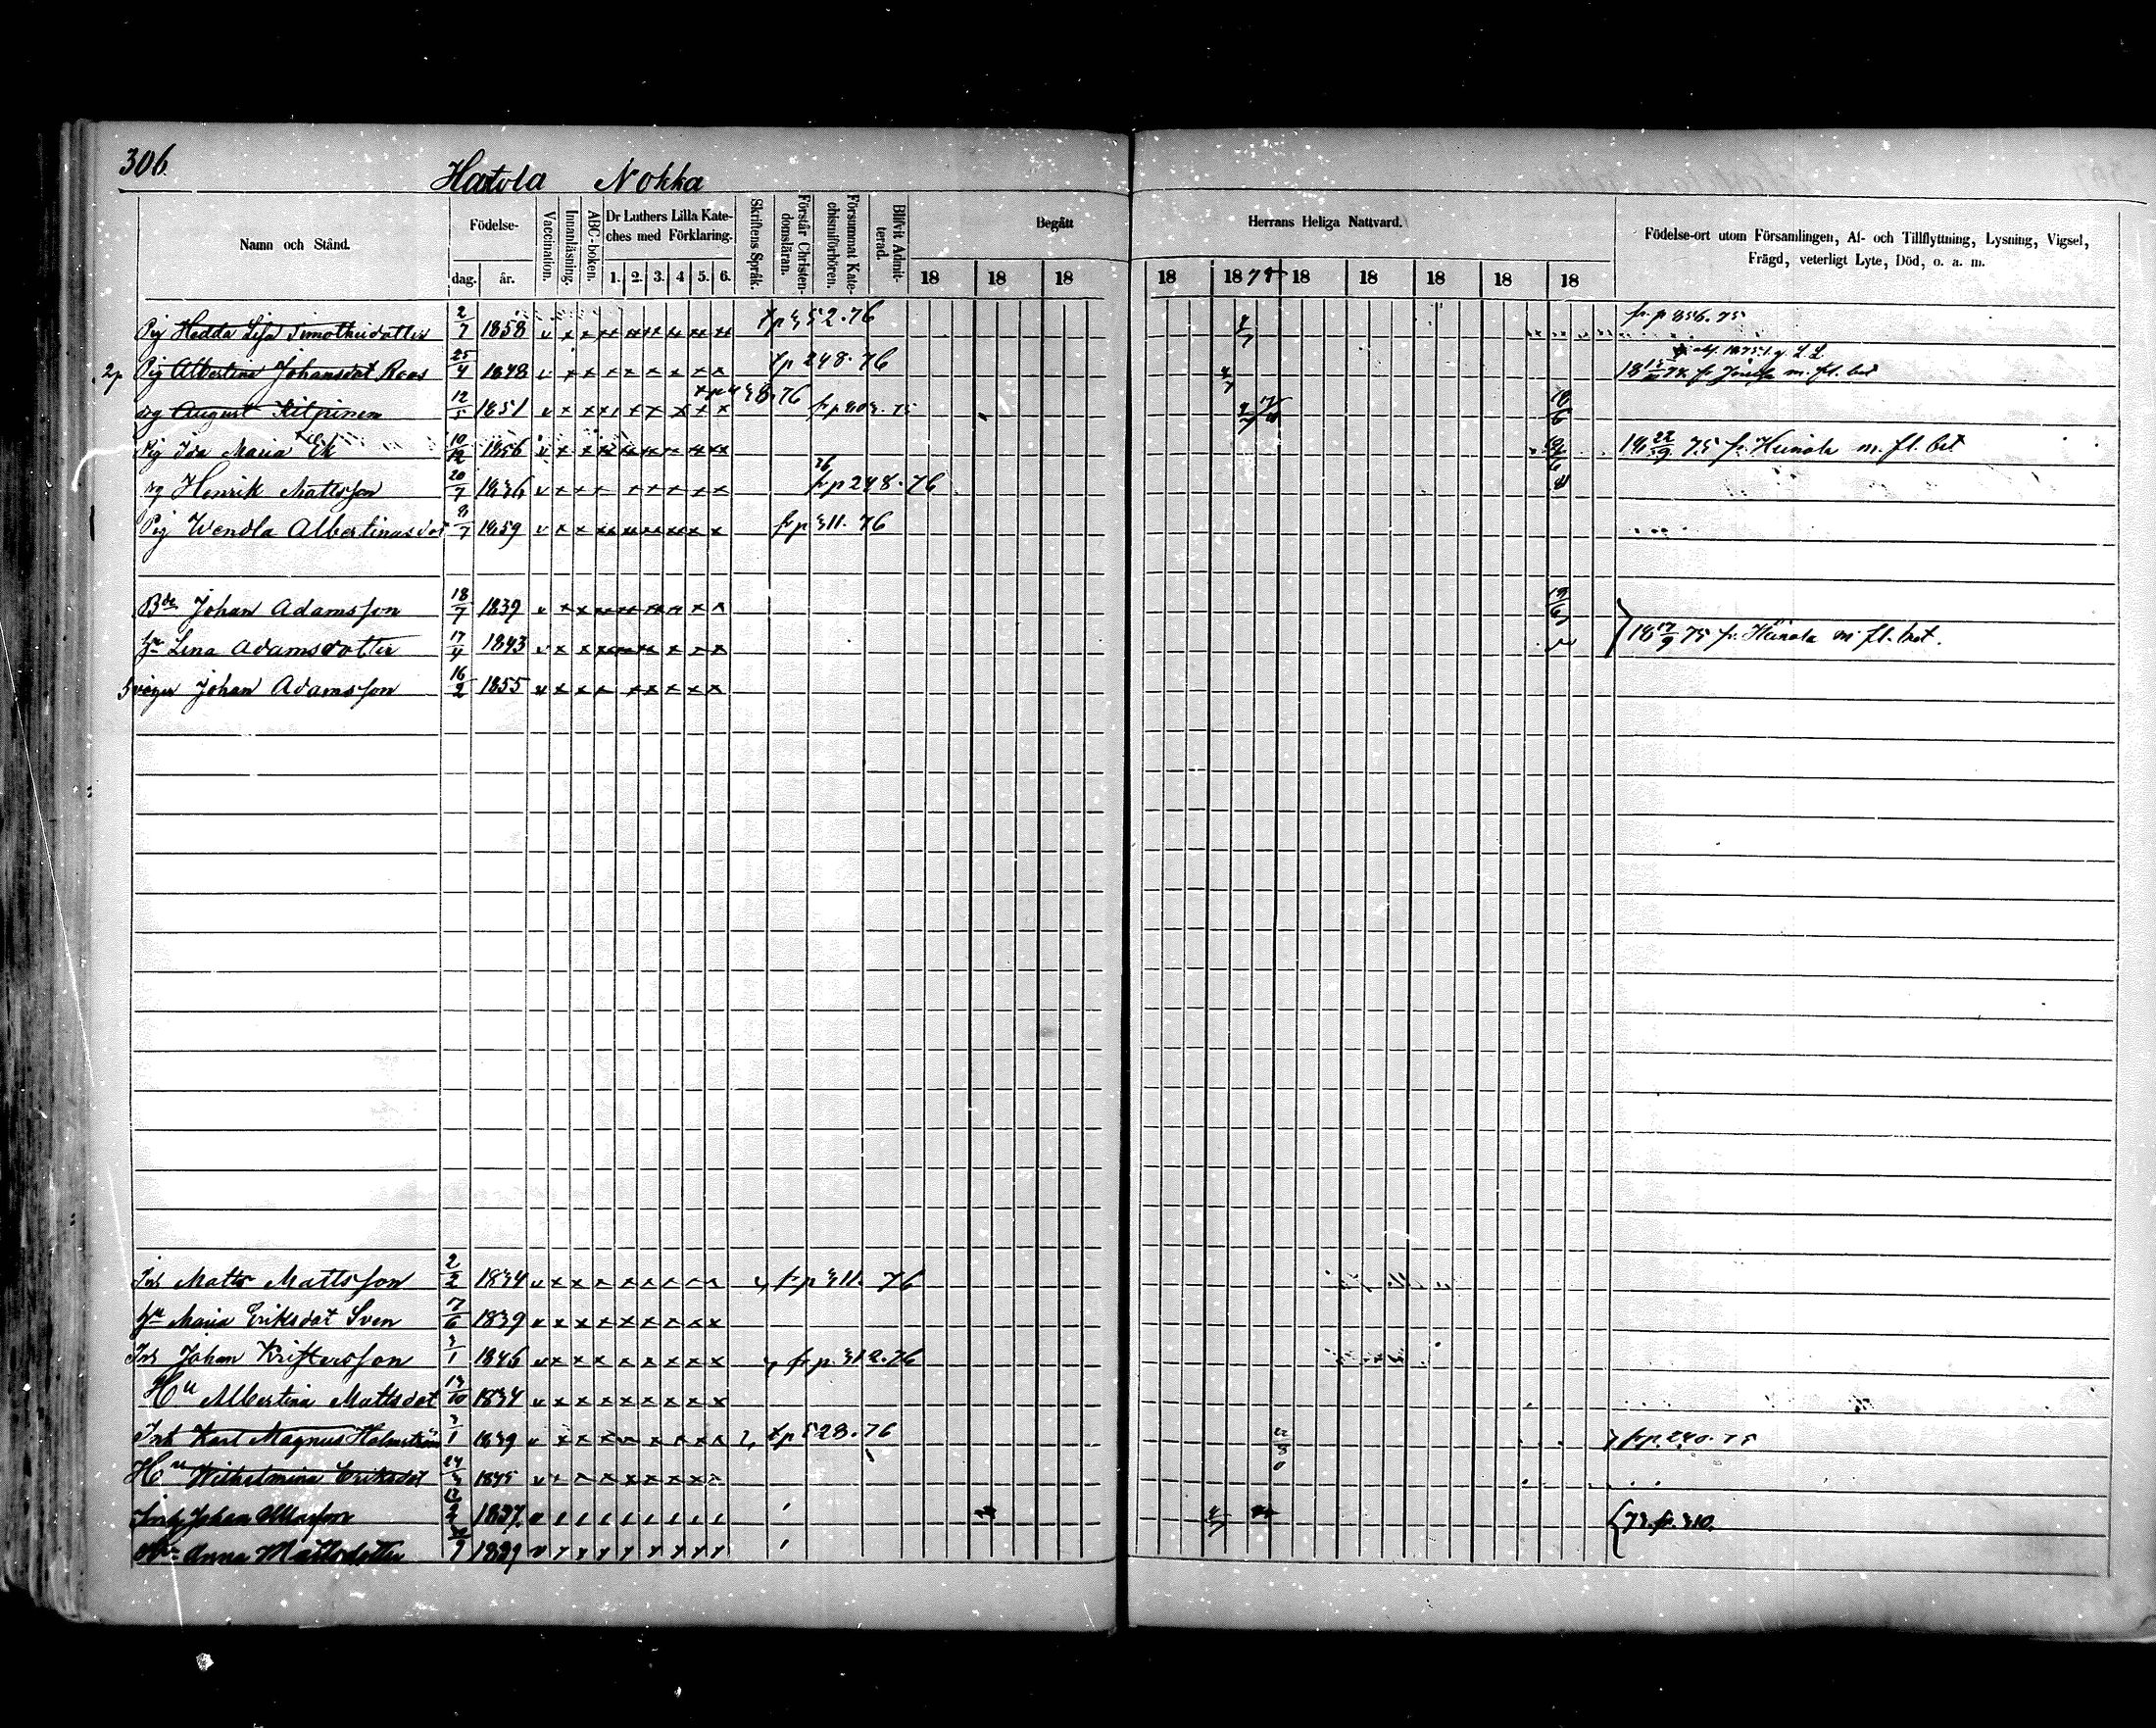 306
Hatola Nokka
Namn och Stånd.
Födelse-
dag. år.
Vaccination.
Innanläsning.
ABC-boken.
Dr Luthers Lilla Kate-
ches med Förklaring.
1. 2. 3. 4 5. 6.
Skriftens Språk.
Förstår Christen-
domsläran.
Försummat Kate-
chismiförhören.
Blifvit Admit-
terad.
Begått
18 18 18
Herrans Heliga Nattvard.
18 1875 18 18 18 18 18
Födelse-ort utom Församlingen, Af- och Tillflyttning, Lysning, Vigsel,
Frägd, veterligt Lyte, Död, o. a. m.
Pig Hedda Lisa Timotheidotter 2/7 1858 v x x x tp 352.76 fr. p 356.75
Pig Albertina Johansdot Roos 25/4 1848 v x x x tp 248.76 m. fl. bet
drg August Kilpinen 12/5 1851 v x x x
Pig Ida Maria Ek 10/12 1856 v x x x 18 22/9 75 fr. Heinola m. fl. bet
drg Henrik Mattsson 20/7 1836 v x x x fr p 248.76
Pig Wendla Albertinasdot 1859 v x x x fr p 311.76
Bde Johan Adamsson 18/7 1839 v x x x 19/6
hu Lina Adamsdotter 17/4 1843 v x x x 18 17/9 75 fr. Heinola m fl. bet.
Svåger Johan Adamsson 16/2 1855 v x x x
Inh Matts Mattsson 2/2 1834 v x x x fr p 311. 76
hu Maria Eriksdot Sven 7/6 1839 v x x x
Inh Johan Kristersson 3/1 1846 v x x x fr p. 312.76
Hu Albertina Mattsdot 13/10 1834 v x x x
Inh Karl Magnus Holmström 3/1 1839 v x x x tp 528.76 fr p. 240.75
Hu Wilhelmina Eriksdot 1845 v
Johan 1837. 73. fr. 310.
Hu Anna Mattsdotter 1829 v